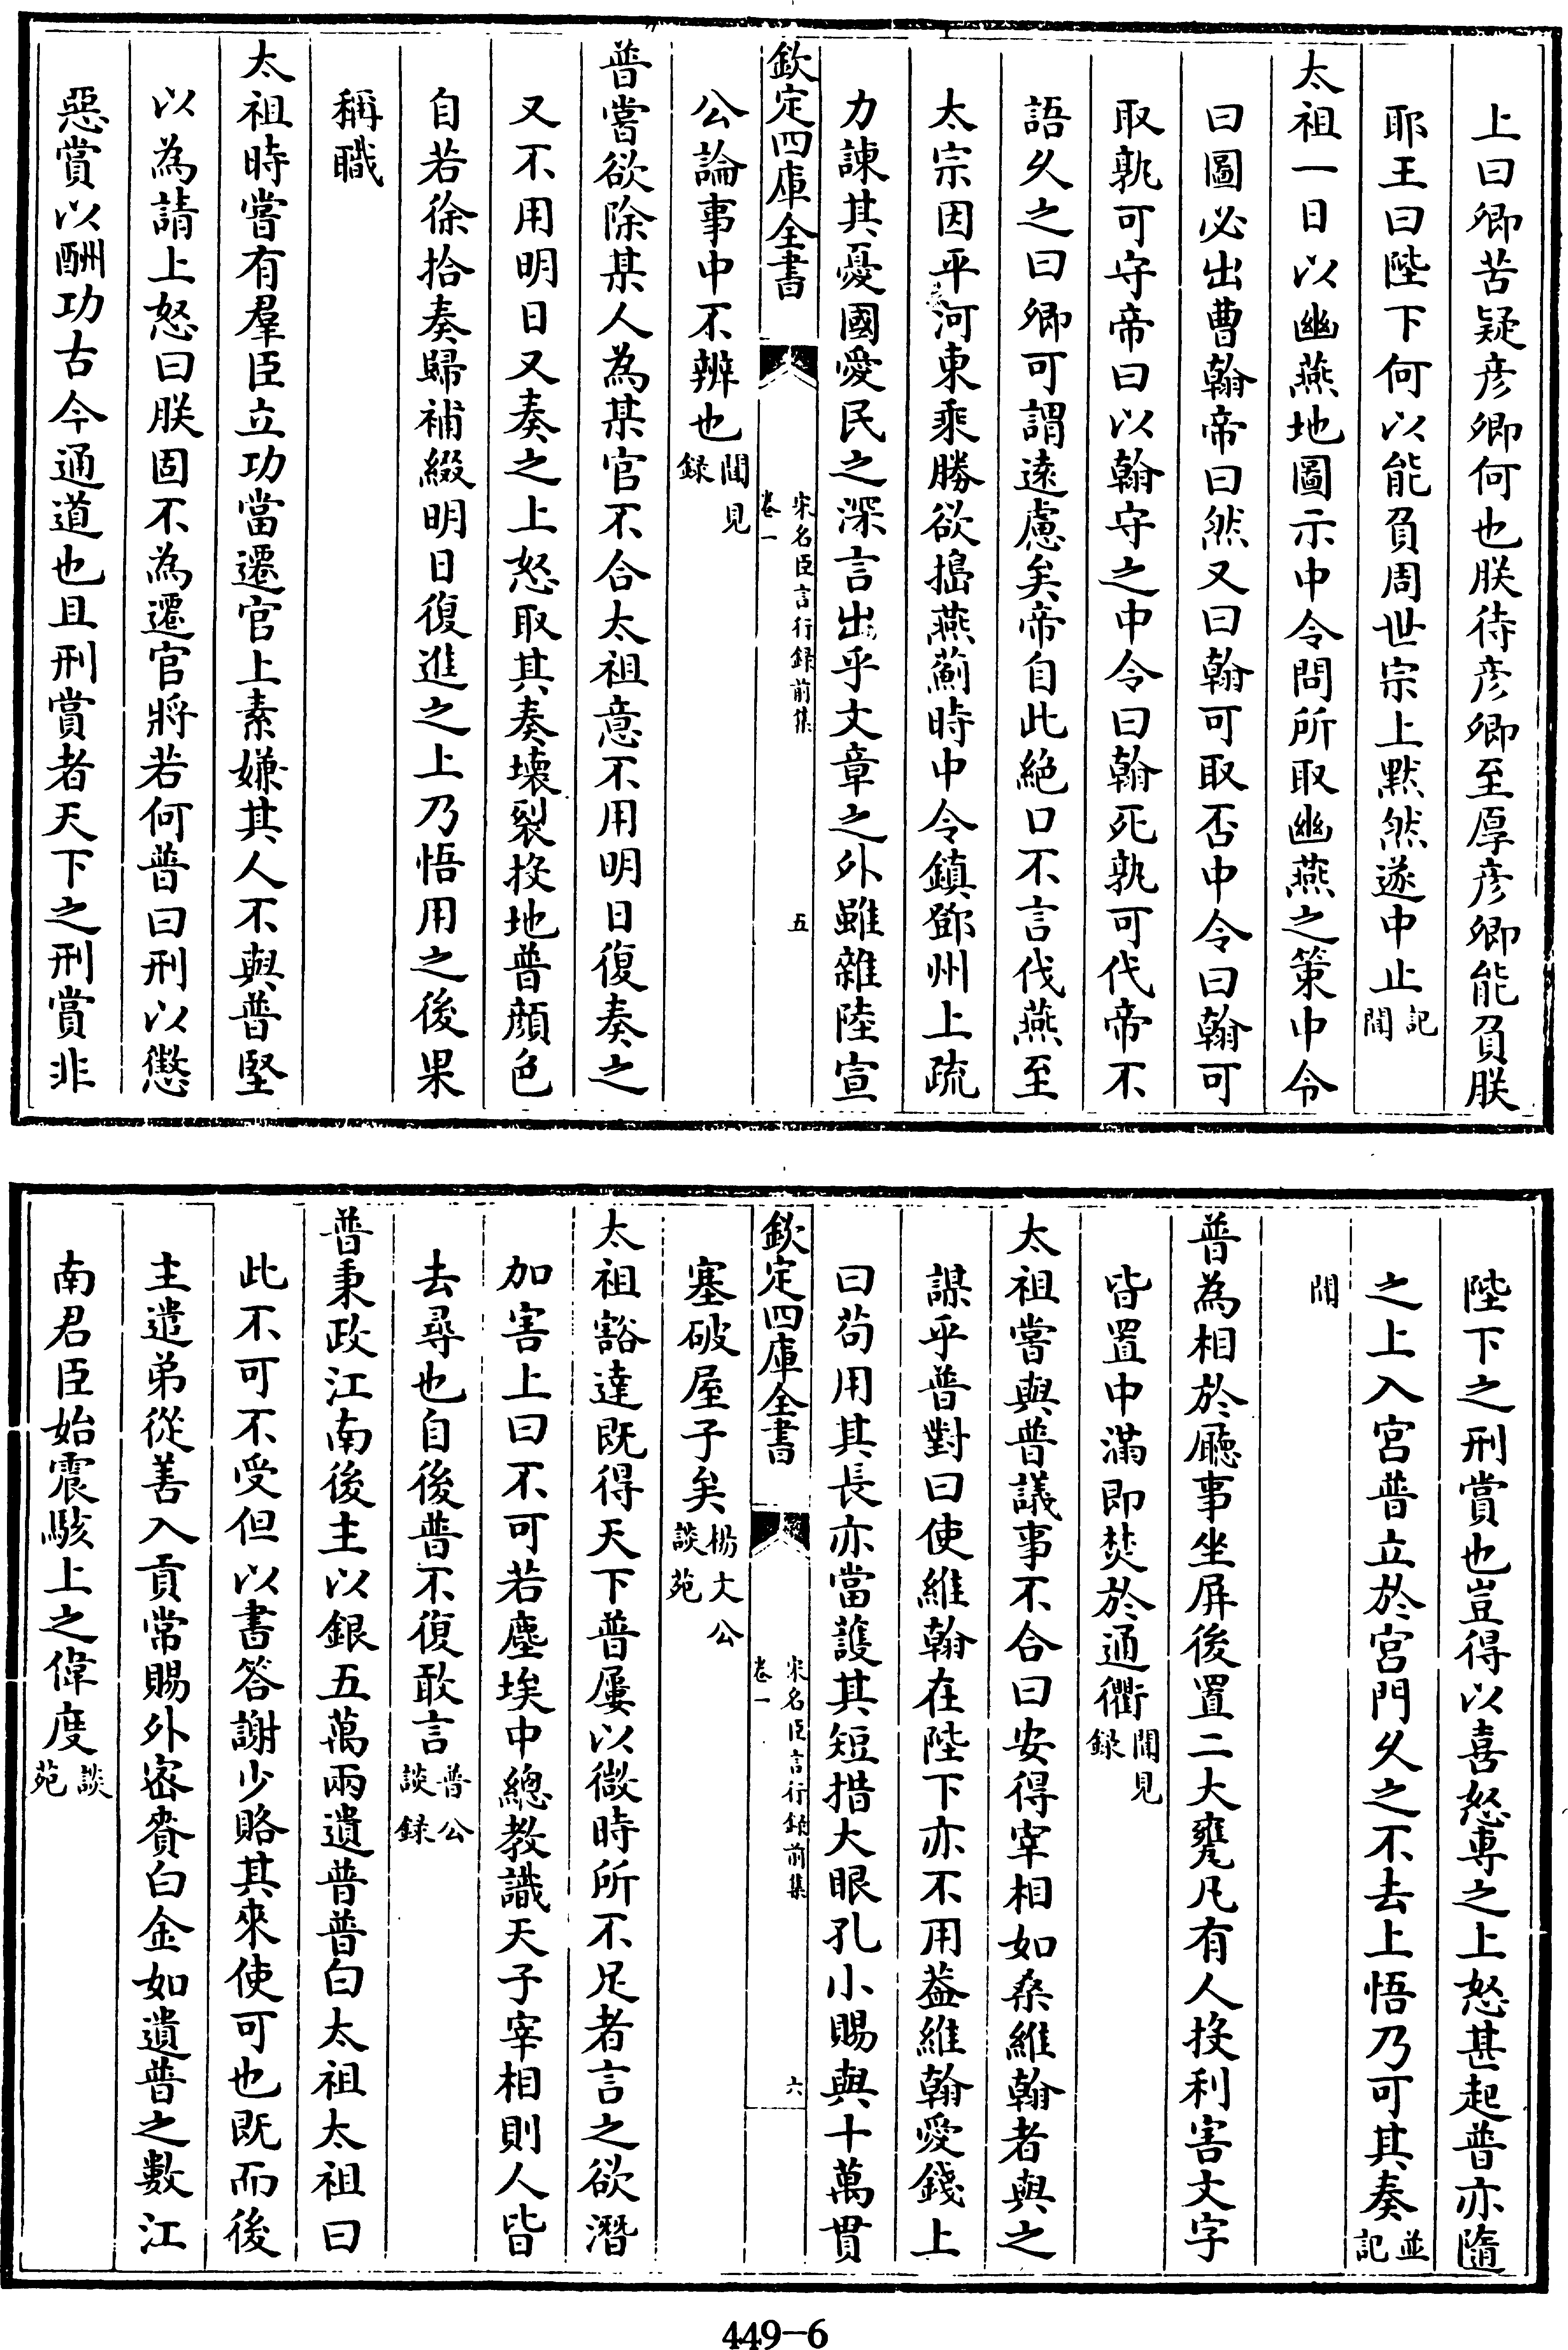 上曰卿苦疑彦卿何也朕待彦卿至厚彦卿能負朕
耶王曰陛下何以能負周世宗上黙然遂中止記聞
太祖一日以幽燕地圖示中令問所取幽燕之策中令
曰圖必出曹翰帝曰然又曰翰可取否中令曰翰可
取孰可守帝曰以翰守之中令曰翰死孰可代帝不
語久之曰卿可謂遠慮矣帝自此絶口不言伐燕至
太宗因平河東乘勝欲搗燕薊時中令鎮鄧州上疏
力諫其憂國愛民之深言出乎文章之外雖雜陸宣
欽定四庫全書 宋名臣言行録前集 卷一 五
公論事中不辨也聞見録
普嘗欲除某人為某官不合太祖意不用明日復奏之
又不用明日又奏之上怒取其奏壊裂投地普顔色
自若徐拾奏歸補綴明日復進之上乃悟用之後果
稱職
太祖時嘗有羣臣立功當遷官上素嫌其人不與普堅
以為請上怒曰朕固不為遷官將若何普曰刑以懲
惡賞以酬功古今通道也且刑賞者天下之刑賞非
陛下之刑賞也豈得以喜怒專之上怒甚起普亦隨
之上入宫普立於宫門久之不去上悟乃可其奏並記
聞
普為相於廳事坐屏後置二大甕凡有人投利害文字
皆置中滿即焚於通衢聞見録
太祖嘗與普議事不合曰安得宰相如桑維翰者與之
謀乎普對曰使維翰在陛下亦不用葢維翰愛錢上
曰茍用其長亦當護其短措大眼孔小賜與十萬貫
欽定四庫全書 宋名臣言行録前集 卷一 六
塞破屋子矣楊文公談苑
太祖豁達既得天下普屢以微時所不足者言之欲潛
加害上曰不可若塵埃中總教識天子宰相則人皆
去尋也自後普不復敢言晉公談録
普秉政江南後主以銀五萬兩遺普普白太祖太祖曰
此不可不受但以書答謝少賂其來使可也既而後
主遣弟從善入貢常賜外密賚白金如遺普之數江
南君臣始震駭上之偉度談苑
449-6